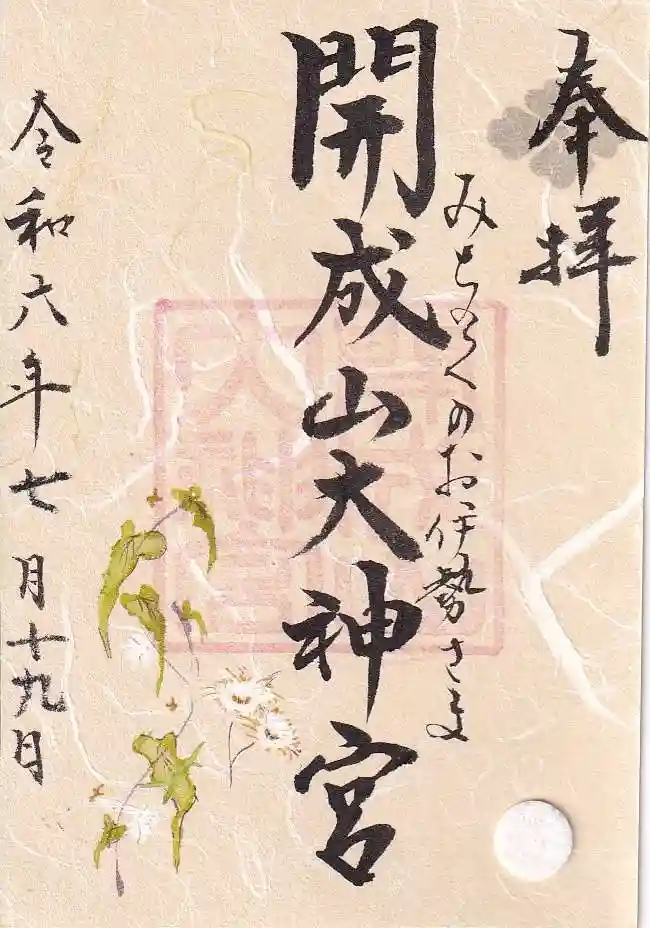 奉拝
みちのくのお伊勢さま
開成山大神宮
令和六年七月十九日